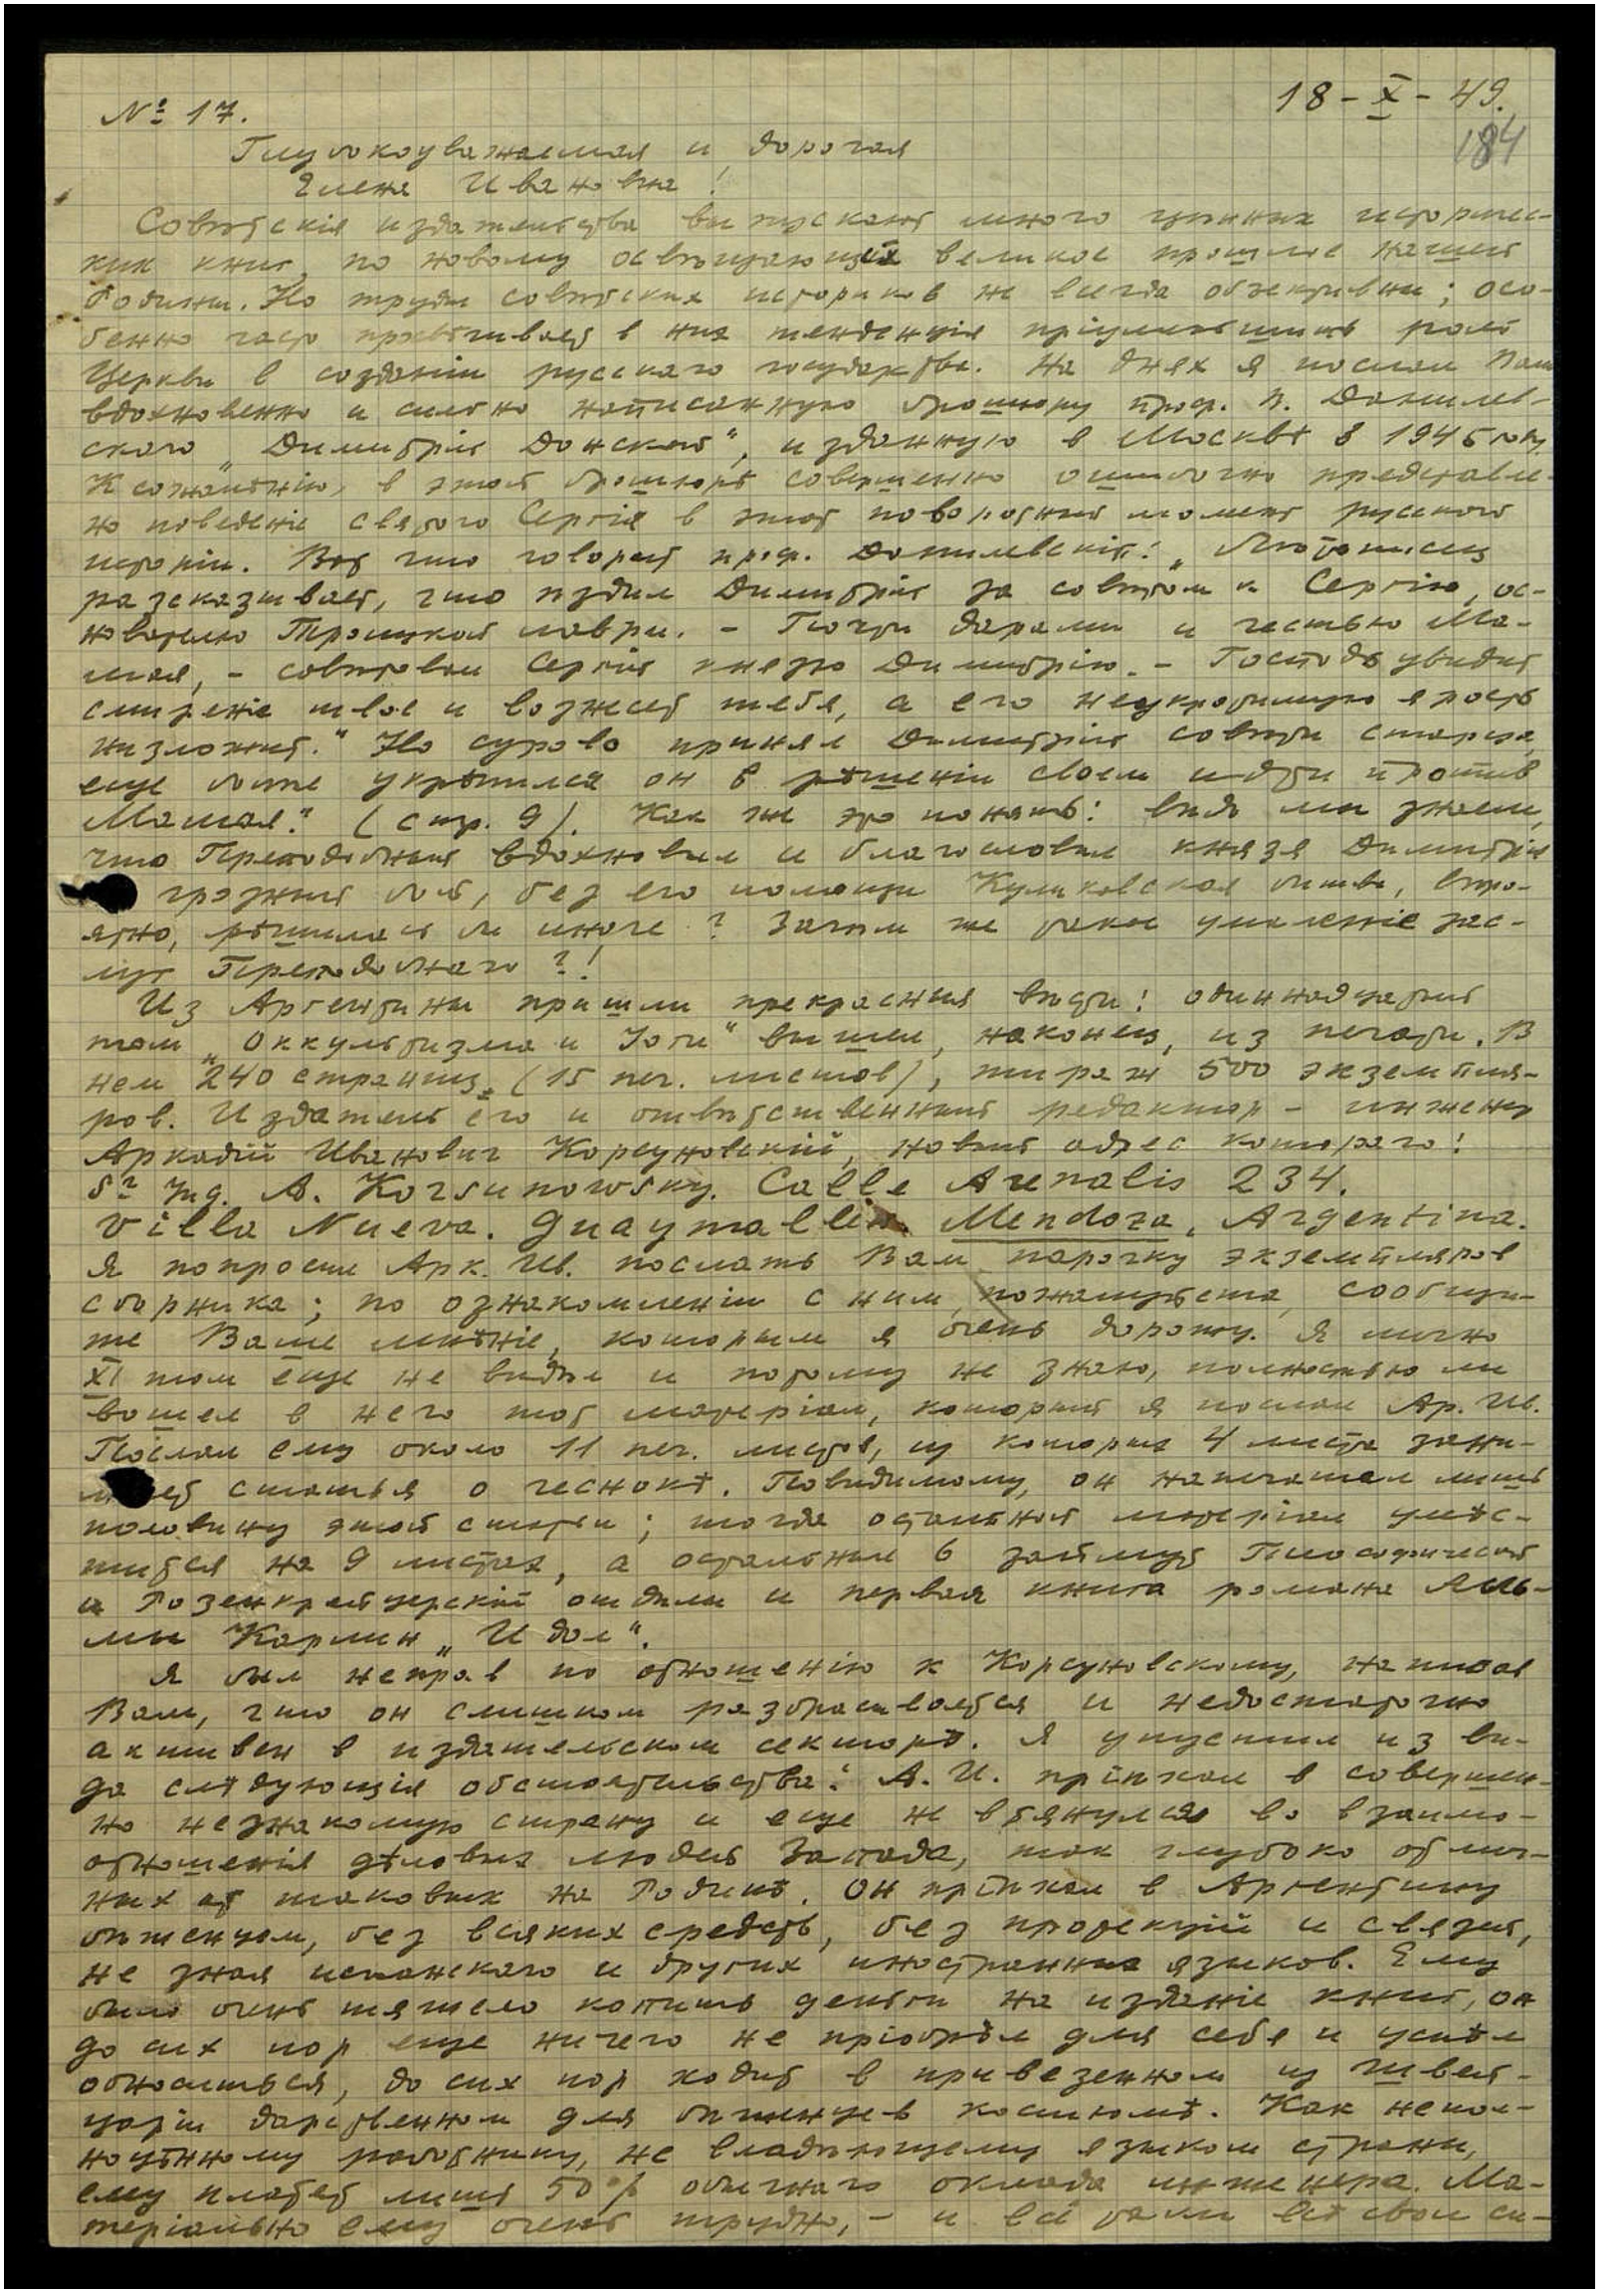 № 17.
18-X-49.
184
Глубокоуважаемая и дорогая
Елена Ивановна!
Совѣтскія издательства выпускают много цѣнных историчес-
ких книг, по новому освѣщающих великое прошлое нашей
Родины. Но труды совѣтских историков не всегда объективны; осо-
бенно часто просвѣчивает в них тенденція пріуменьшить роль
Церкви в созданіи русскаго государства. На днях я послал Вам
вдохновенно и сильно написанную брошюру проф. В. Данилев-
скаго „Димитрій Донской", изданную в Москвѣ в 1945 году.
К сожалѣнію, в этой брошюрѣ совершенно ошибочно представле-
но поведеніе святого Сергія в этот поворотный момент русской
исторіи. Вот что говорит проф. Данилевскій: „Лѣтописец
разсказывает, что ѣздил Димитрій за совѣтом к Сергію, ос-
нователю Троицкой лавры. – Почти дарами и честью Ма-
мая, – совѣтовал Сергій князю Димитрію. – Господь увидит
смиреніе твое и вознесет тебя, а его неукротимую ярость
низложит." Но сурово принял Димитрій совѣты старца,
еще болѣе укрѣпился он в рѣшеніи своем идти против
Мамая." (стр. 9). Как же это понять: вѣдь мы знаем,
что Преподобный вдохновил и благословил князя Димитрія
грозный бой, без его помощи Куликовская битва, вѣро-
ятно, рѣшилась бы иначе? Зачѣм же такое умаленіе зас-
луг Преподобнаго?!
Из Аргентины пришли прекрасныя вѣсти: одиннадцатый
том „Оккультизма и Іоги" вышел, наконец, из печати. В
нем 240 страниц (15 печ. листов), тираж 500 экземпля-
ров. Издатель его и отвѣтственный редактор – инженер
Аркадій Иванович Корсуновскій, новый адрес котораго:
Sr Ing. A. Korsunowsky. Calle Arenalis 234.
Villa Nueva. Guaymallen. Mendoza, Argentina.
Я попросил Арк. Ив. послать Вам парочку экземпляров
сборника; по ознакомленіи с ним, пожалуйста, сообщи-
те Ваше мнѣніе, которым я очень дорожу. Я лично
XI том еще не видѣл и потому не знаю, полностью ли
вошел в него тот матеріал, который я послал Ар. Ив.
Послал ему около 11 печ. листов, из которых 4 листа зани-
мает статья о чеснокѣ. Повидимому, он напечатал лишь
половину этой статьи; тогда остальной матеріал умѣс-
тится на 9 листах, а остальные 6 займут Теософическій
и Розенкрейцерскій отдѣлы и первая книга романа Аль-
мы Кармин „Идол".
Я был неправ по отношенію к Корсуновскому, написав
Вам, что он слишком разбрасывается и недостаточно
активен в издательском секторѣ. Я упустил из ви-
да слѣдующія обстоятельства: А. И. пріѣхал в совершен-
но незнакомую страну и еще не втянулся во взаимо-
отношенія дѣловых людей Запада, так глубоко отлич-
ных от таковых на Родинѣ. Он пріѣхал в Аргентину
бѣженцем, без всяких средств, без протекцій и связей,
не зная испанскаго и других иностранных языков. Ему
было очень тяжело копить деньги на изданіе книг, он
до сих пор еще ничего не пріобрѣл для себя и успѣл
обноситься, до сих пор ходит в привезенном из Швей-
царіи дарственном для бѣженцев костюмѣ. Как непол-
ноцѣнному работнику, не владѣющему языком страны,
ему платят лишь 50% обычнаго оклада инженера. Ма-
теріально ему очень трудно, – и всё таки всѣ свои си-